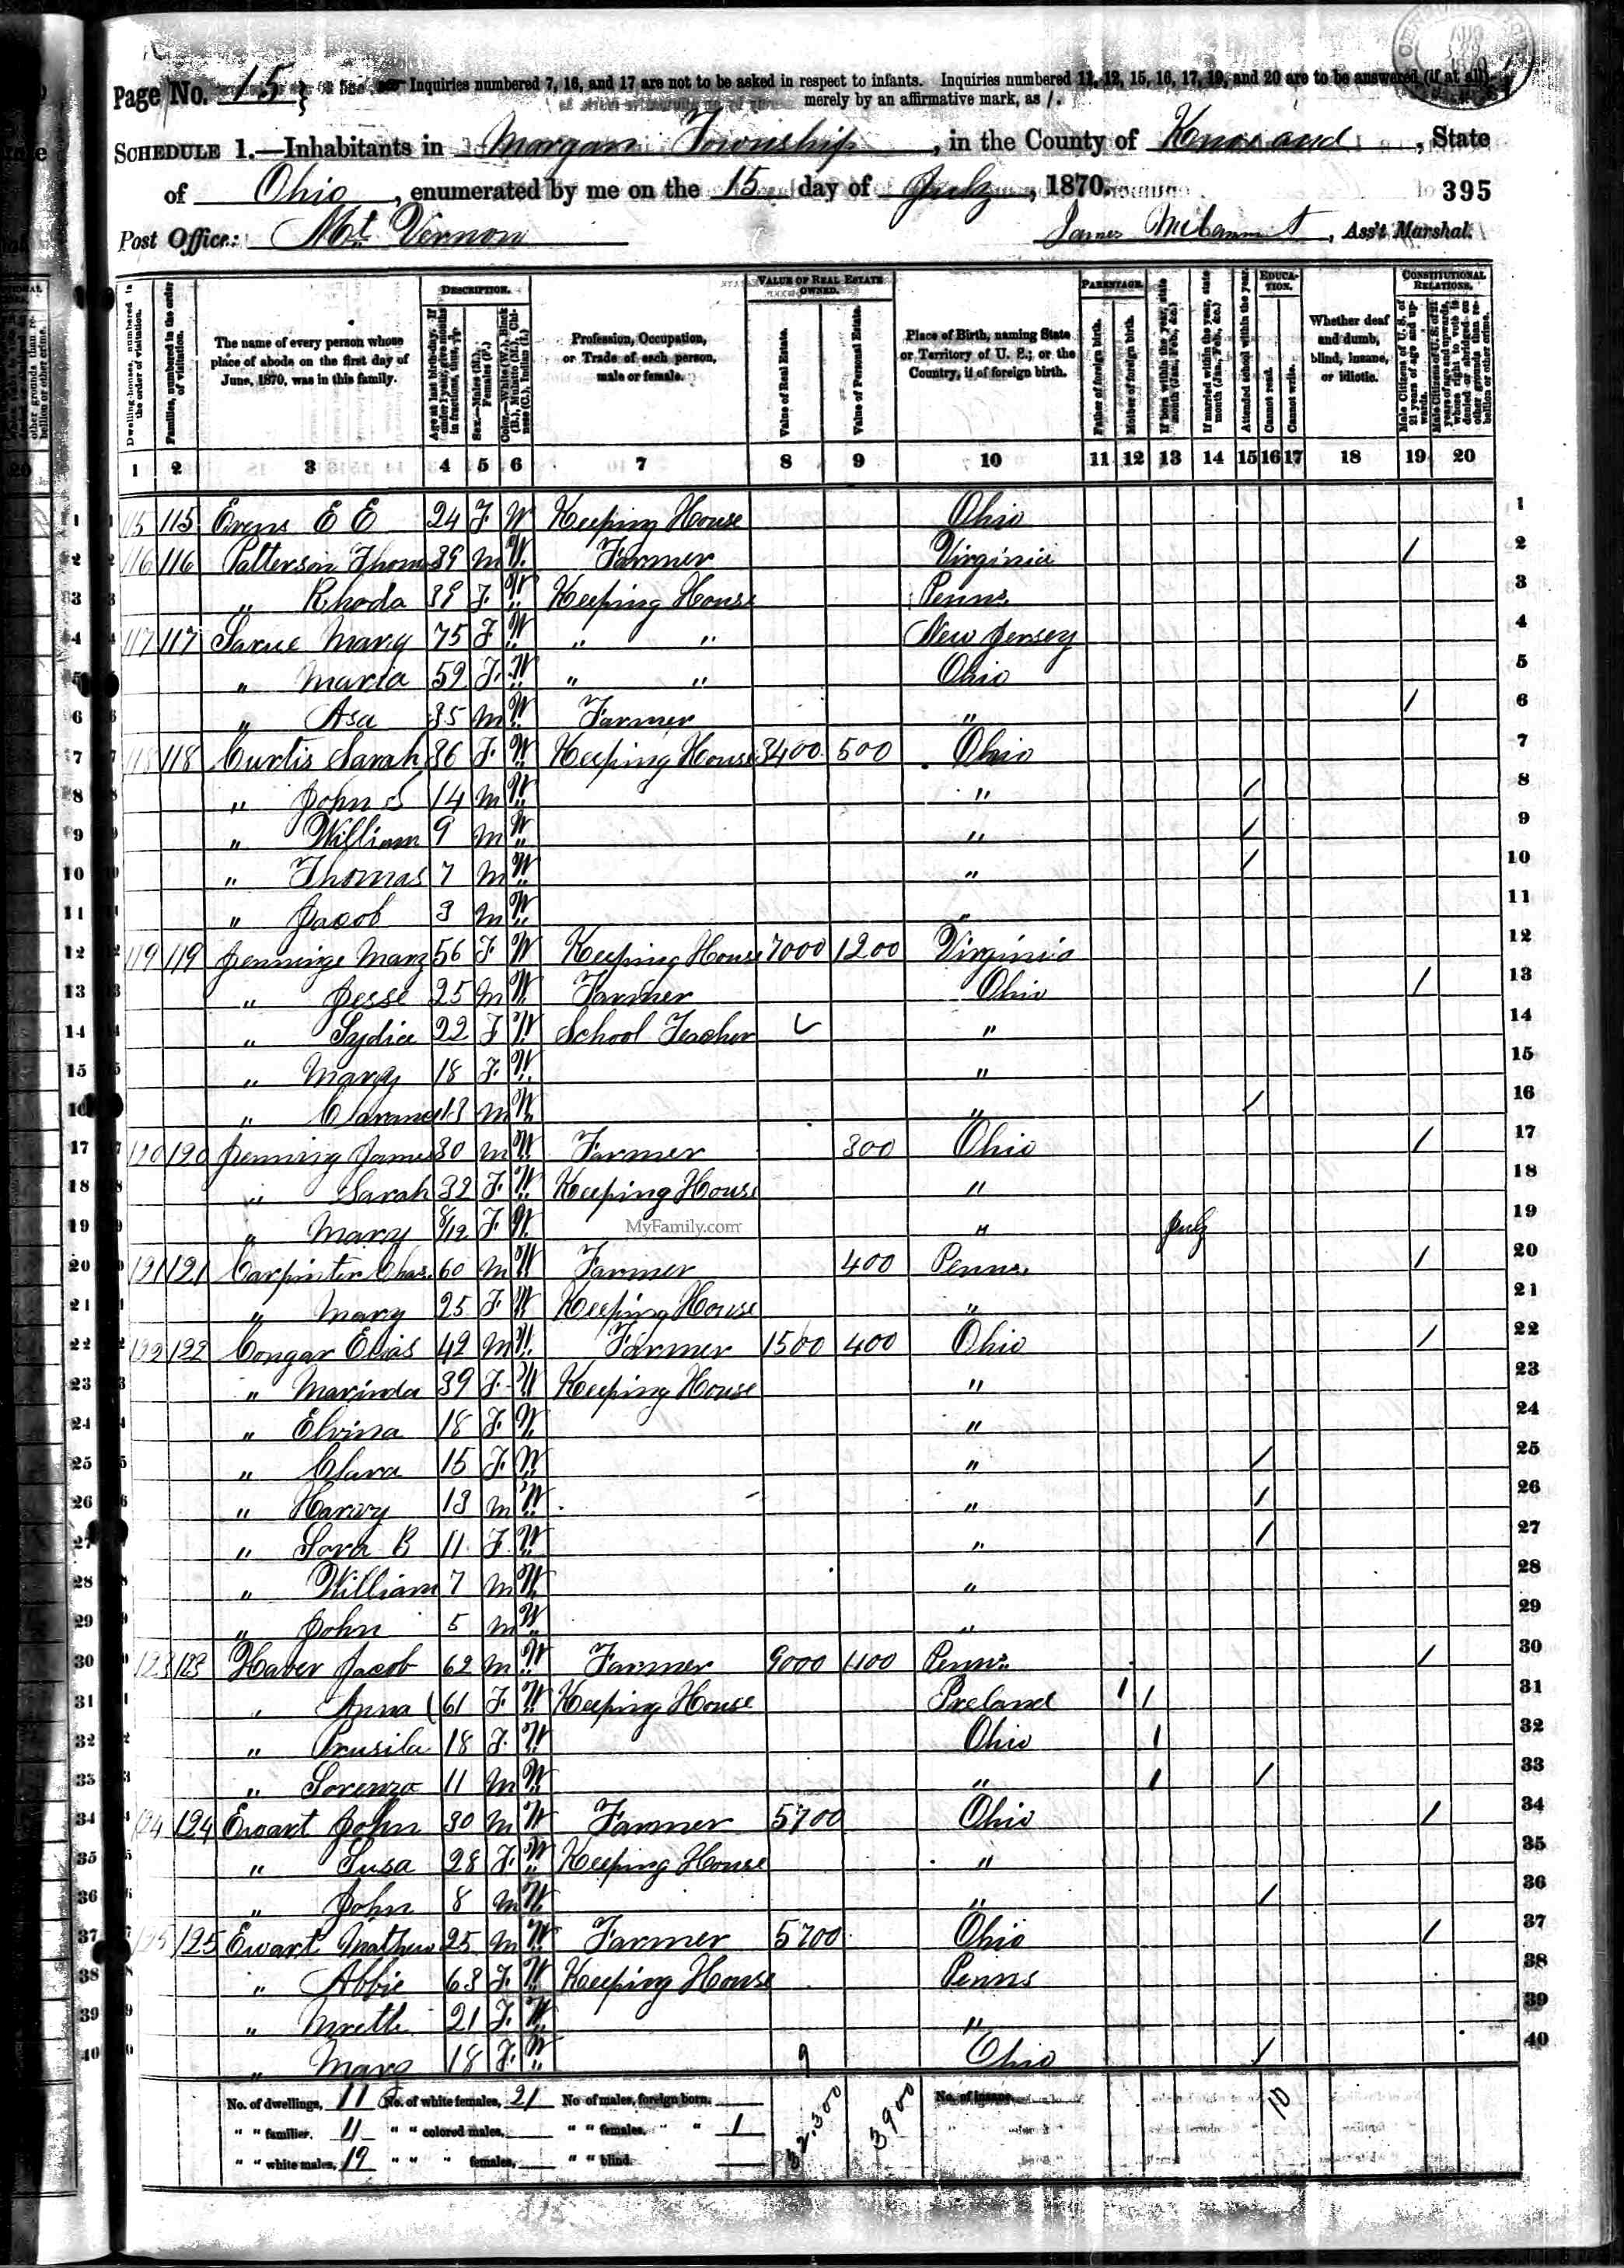 Page No. 15 Inquiries numbered 7, 16, and 17 are not to be asked in respect to infants. Inquiries numbered 11, 12, 15, 16, 17, 19, and 20 are to be answered (if at all)
merely by an affirmative mark, as /.
SCHEDULE 1.—Inhabitants in Morgan Township, in the County of Knox and, State
of Ohio, enumerated by me on the 15 day of July, 1870.
395
Post Office: Mt Vernon James, Ass't Marshal.
Dwelling-houses, numbered in the order of visitation.
Families, numbered in the order of visitation.
The name of every person whose place of abode on the first day of June, 1870, was in this family.
DESCRIPTION.
Age at last birth-day. If under 1 year, give months in fractions, thus,
Sex.—Males (M.), Females (F.)
Color.—White (W.), Black (B.), Mulatto (M.), Chinese (C.), Indian (I.)
Profession, Occupation, or Trade of each person, male or female.
VALUE OF REAL ESTATE OWNED.
Value of Real Estate.
Value of Personal Estate.
Place of Birth, naming State or Territory of U. S.; or the Country, if of foreign birth.
PARENTAGE.
Father of foreign birth.
Mother of foreign birth.
If born within the year, state month (Jan., Feb., &c.)
If married within the year, state month (Jan., Feb., &c.)
EDUCATION.
Attended school within the year.
Cannot read.
Cannot write.
Whether deaf and dumb, blind, insane, or idiotic.
CONSTITUTIONAL RELATIONS.
Male Citizens of U. S. of 21 years of age and upwards.
Male Citizens of U. S. of 21 years of age and upwards, whose right to vote is denied or abridged on other grounds than rebellion or other crime.
1 2 3 4 5 6 7 8 9 10 11 12 13 14 15 16 17 18 19 20
1 115 115 Evens E E 24 F W Keeping House Ohio 1
2 116 116 Patterson Thom 39 M W Farmer Virginia / 2
3 " Rhoda 39 F W Keeping House Penns. 3
4 117 117 Mary 75 F W " " New Jersey 4
5 " Maria 52 F W " " Ohio 5
6 " Asa 35 M W Farmer " / 6
7 118 118 Curtis Sarah 36 F W Keeping House 3400 500 Ohio 7
8 " John S 14 M W " / 8
9 " William 9 M W " / 9
10 " Thomas 7 M W " / 10
11 " Jacob 3 M W " 11
12 119 119 Jennings Mary 56 F W Keeping House 7000 1200 Virginia 12
13 " Jesse 25 M W Farmer Ohio / 13
14 " Lydia 22 F W School Teacher " 14
15 " Mary 18 F W " 15
16 " 13 M W " / 16
17 120 120 Jenning James 30 M W Farmer 300 Ohio / 17
18 " Sarah 32 F W Keeping House " 18
19 " Mary 8/12 F W " July 19
MyFamily.com
20 121 121 Carpinter Chas. 60 M W Farmer 400 Penns. / 20
21 " Mary 25 F W Keeping House " 21
22 122 122 Congar Elias 42 M W Farmer 1500 400 Ohio / 22
23 " Marinda 39 F W Keeping House " 23
24 " Elvina 18 F W " 24
25 " Clara 15 F W " / 25
26 " Harvey 13 M W " / 26
27 " Lora B 11 F W " / 27
28 " William 7 M W " 28
29 " John 5 M W " 29
30 123 123 Haver Jacob 62 M W Farmer 9000 1100 Penns. / 30
31 " Anna 61 F W Keeping House Ireland 1 1 31
32 " Prusila 18 F W Ohio 1 32
33 " Lorenzo 11 M W " 1 / 33
34 124 124 Ewart John 30 M W Farmer 5700 Ohio / 34
35 " Susa 28 F W Keeping House " 35
36 " John 8 M W " / 36
37 125 125 Ewart Mathew 25 M W Farmer 5700 Ohio / 37
38 " Abbie 63 F W Keeping House Penns 38
39 " 21 F W " 39
40 " Mary 18 F W 9 Ohio / 40
No. of dwellings, 11 No. of white females, 21 No of males, foreign born. 32,300 3900 No. of insane, 10
" " families. 11 " " colored males, " " females, " " 1
" " white males, 19 " " " females, " " blind.